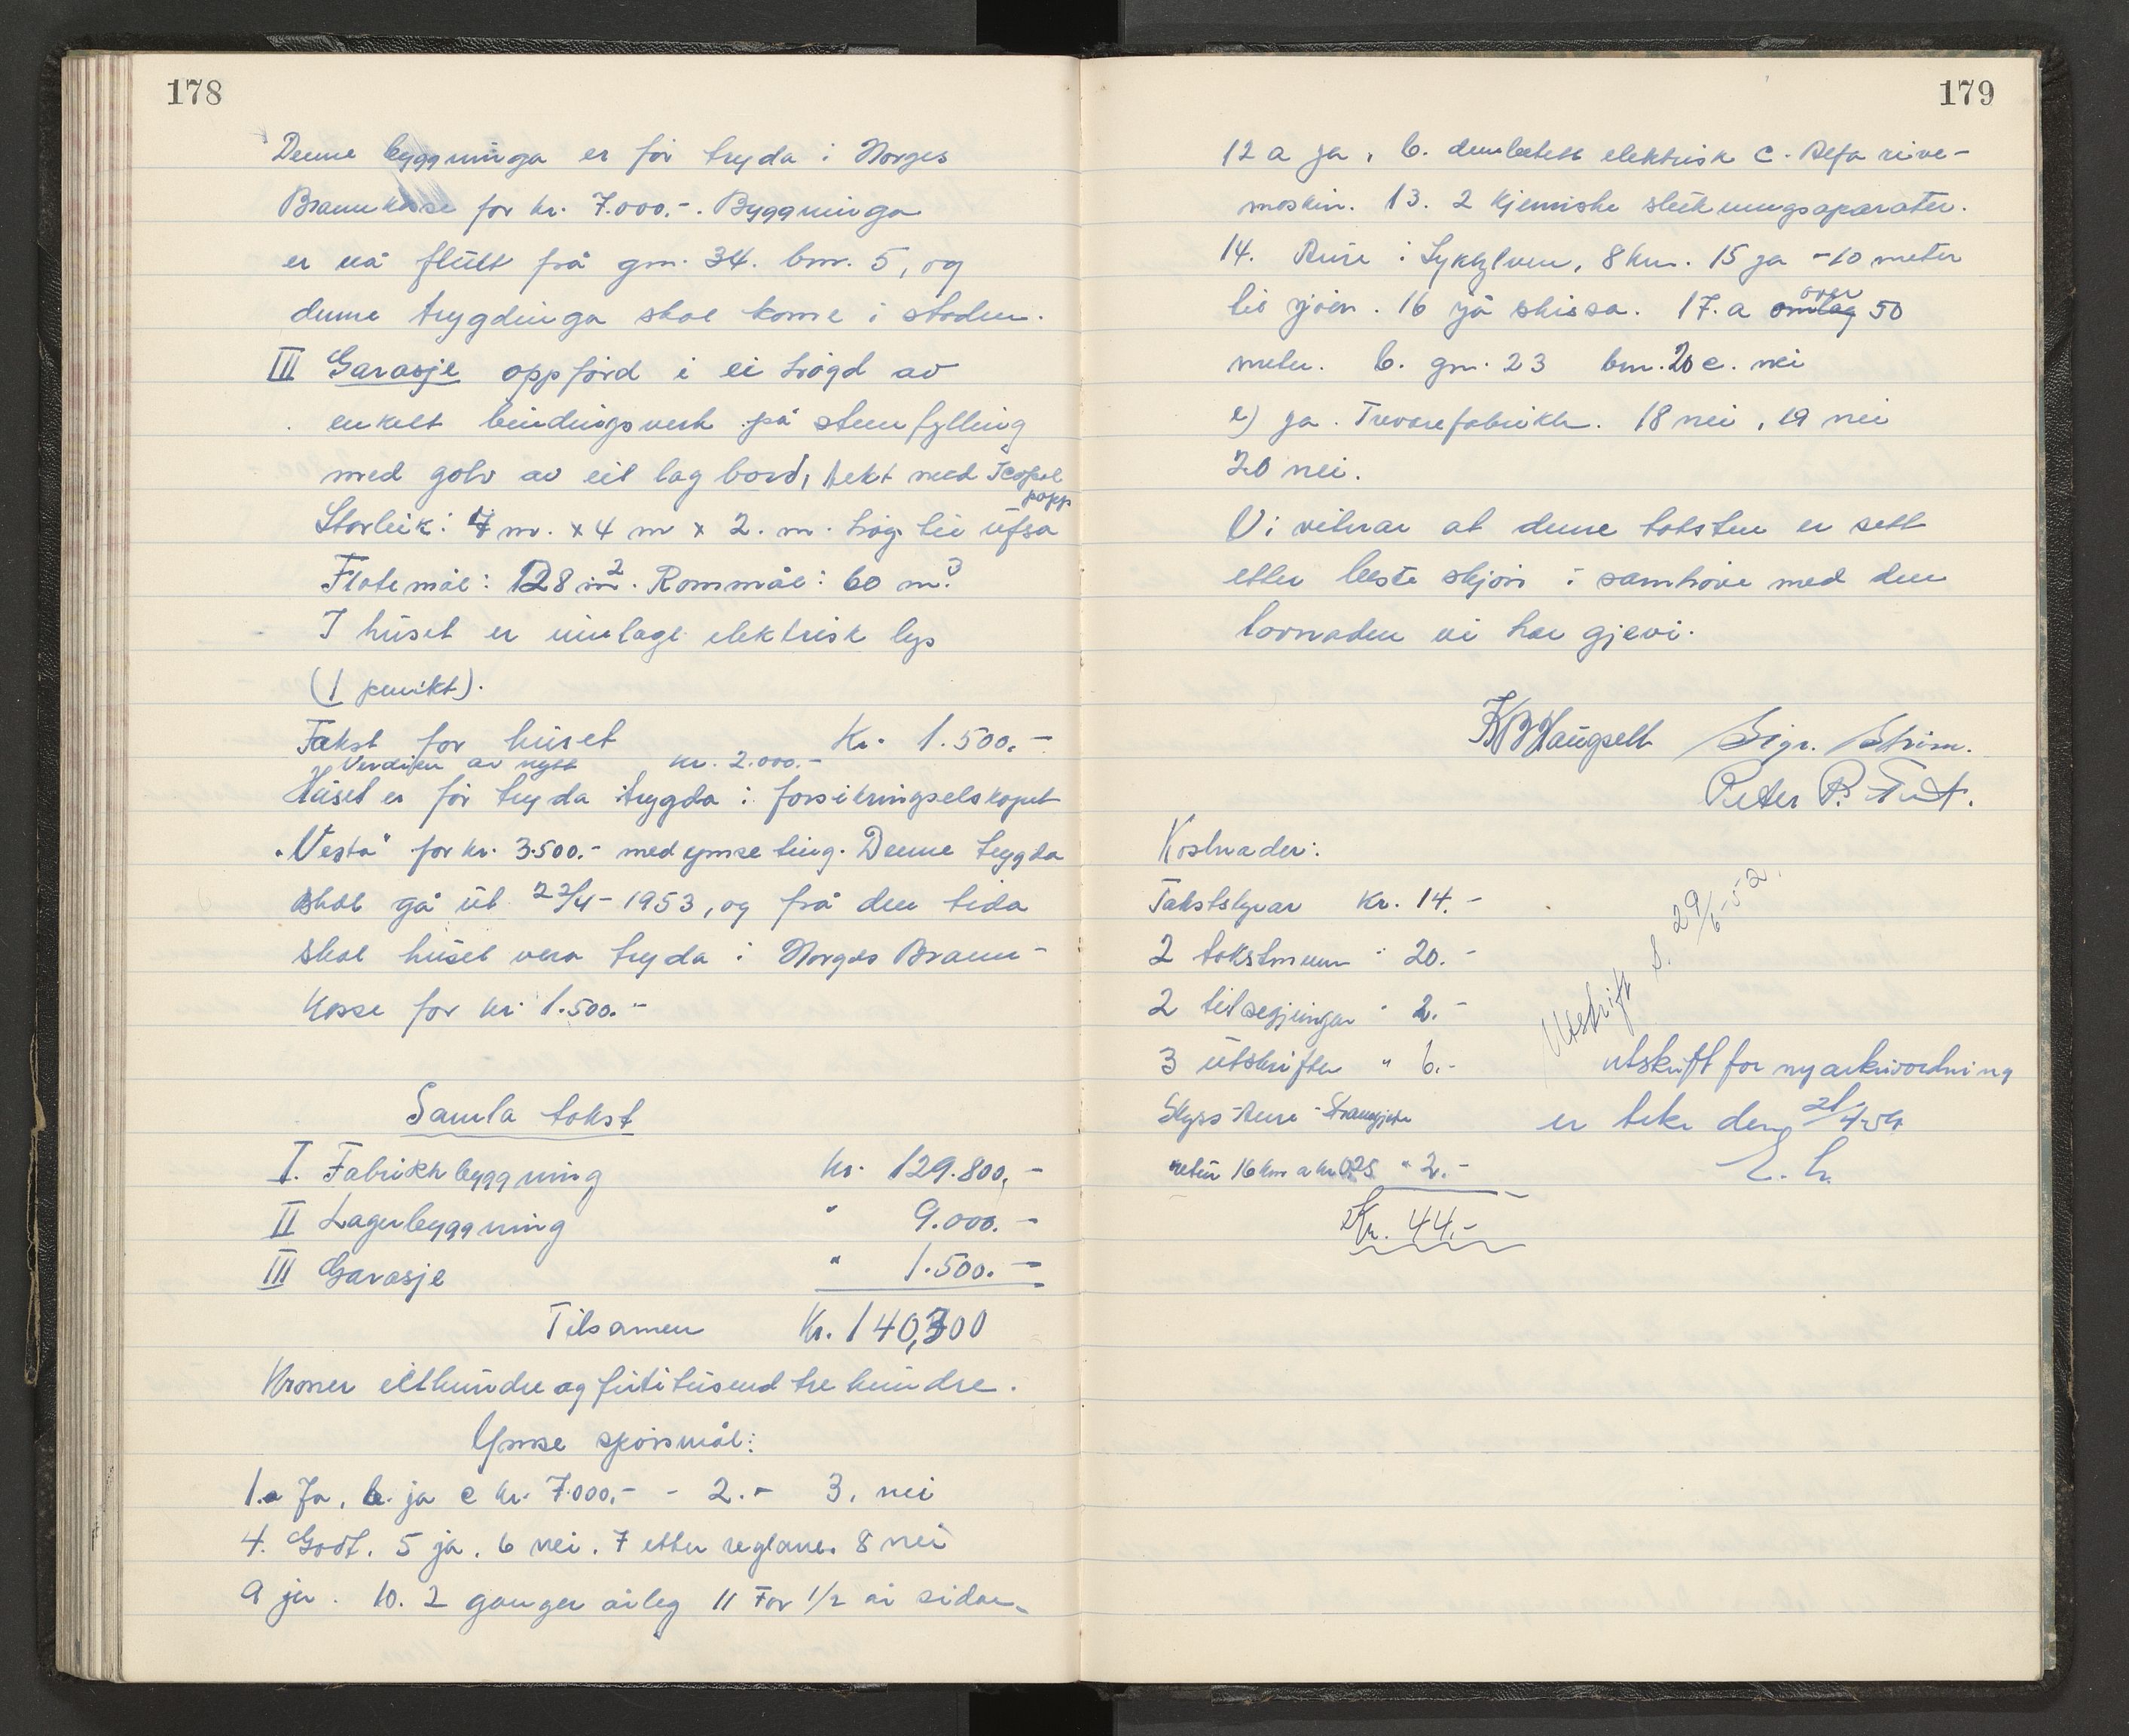 178
Denne byggninga er før tryda i Norges
Brannkasse for kr. 7.000.-. Byggninga
er nå flutt frå gnr. 34. bnr. 5, og
denne trygdinga skal kome i staden.
III Garasje oppførd i ei høgd av
enkelt bindingsverk på stenfylling
med golv av eit lag bord, tekt med Icopal
papp
Storleik: 7 m. x 4 m x 2. m. høg til ufsa
Flatemål: 28 m². Rommål: 60 m³
I huset er innlagt elektrisk lys
(1 punkt).
Takst for huset Kr. 1.500.-
Verdien av nytt kr. 2.000.-
Huset er før tryda trygda i forsikringselskapet
"Vesta" for kr. 3.500.- med ymse ting. Denne trygda
skal gå ut 22/4-1953, og frå den tida
skal huset vera tryda i Norges Brann-
kasse for kr 1.500.-
Samla takst
I. Fabrikkbyggning kr. 129.800,-
II Lagerbyggning " 9.000.-
III Garasje " 1.500.-
Tilsamen Kr. 140,300
Kroner eitthundre og førtitusend tre hundre.
Ymse spørsmål:
1.a Ja, b. ja c kr. 7.000,- - 2.- 3. nei
4. Godt. 5 ja. 6 nei. 7 etter reglane. 8 nei
9 ja. 10. 2 ganger årleg 11 For 1/2 år sidan.
179
12 a ja, b. elektrisk c. Alfa rive-
maskin. 13. 2 kjemiske sløkningsaparater.
14. Aure i Sykkylven, 8 km. 15 ja -10 meter
til sjøen. 16 sjå skissa. 17. a omlag over 50
meter. b. gnr. 23 bnr. 20 c. nei
e) ja. Trevarefabrikk. 18 nei, 19 nei
20 nei.
Vi vitnar at denne taksten er sett
etter beste skjøn i samhøve med den
lovnaden vi har gjevi.
K B Haugsett Sigr. Strøm.
Peter P. Tu
Kostnader:
Takststyrar Kr. 14.-
2 takstmenn " 20.-
2 tilsegjingar " 2.-
3 utskrifter " 6.-
Skyss Aure - Straumgjerde
retur 16 km a kr 0,25 " 2.-
Kr. 44.-
Utskrift s. 29/6-52.
utskrift for ny arkivordning
er teke den 21/4-54
E. h.